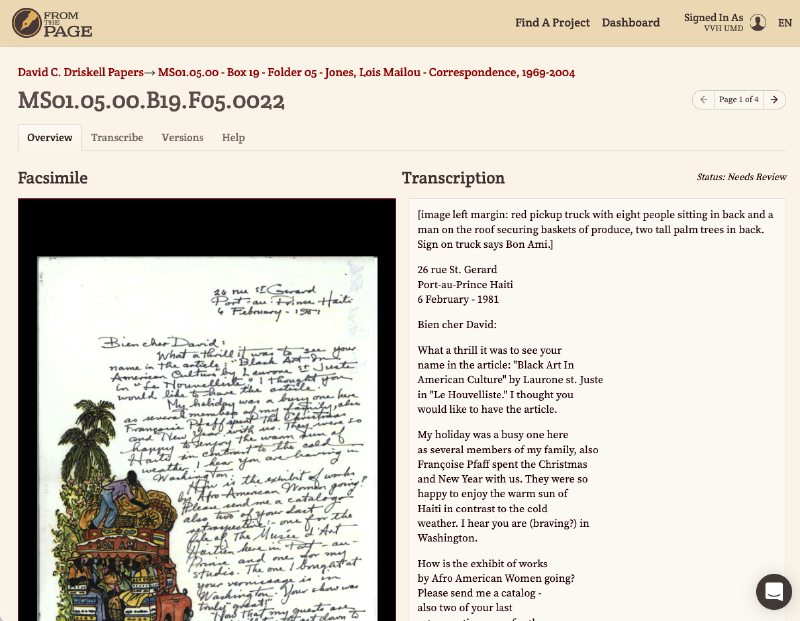 FROM
THE
PAGE
Find A Project
Dashboard
Signed In As
VVH UMD
EN
David C. Driskell Papers→ MS01.05.00 - Box 19 - Folder 05 - Jones, Lois Mailou - Correspondence, 1969-2004
MS01.05.00.B19.F05.0022
← Page 1 of 4 →
Overview
Transcribe
Versions
Help
Facsimile
26 rue St Gerard
Port-au-Prince Haiti
6 February - 1981
Bien cher David:
What a thrill it was to see your
name in the article: "Black Art In
American Culture" by Laurone St Juste
in "Le Nouvelliste." I thought you
would like to have the article.
My holiday was a busy one here
as several members of my family, also
Françoise Pfaff spent the Christmas
and New Year with us. They were so
happy to enjoy the warm sun of
Haiti in contrast to the cold
weather. I hear you are having in
Washington.
How is the exhibit of works
by Afro-American Women going?
Please send me a catalog -
also two of your last
retrospective - one for the
file of the Musée d'Art
Haitien here in Port-au-
Prince and one for my
studio. The one I bought at
your vernissage is in
Washington. Your show was
truly great!"
Now that my guests are
BON AMI
Transcription
Status: Needs Review
[image left margin: red pickup truck with eight people sitting in back and a
man on the roof securing baskets of produce, two tall palm trees in back.
Sign on truck says Bon Ami.]
26 rue St. Gerard
Port-au-Prince Haiti
6 February - 1981
Bien cher David:
What a thrill it was to see your
name in the article: "Black Art In
American Culture" by Laurone st. Juste
in "Le Houvelliste." I thought you
would like to have the article.
My holiday was a busy one here
as several members of my family, also
Françoise Pfaff spent the Christmas
and New Year with us. They were so
happy to enjoy the warm sun of
Haiti in contrast to the cold
weather. I hear you are (braving?) in
Washington.
How is the exhibit of works
by Afro American Women going?
Please send me a catalog -
also two of your last